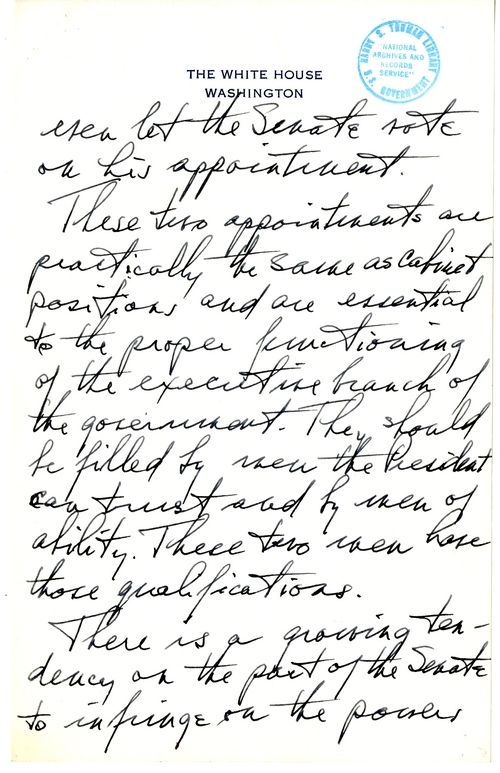 THE WHITE HOUSE
WASHINGTON
HARRY S. TRUMAN LIBRARY
"NATIONAL
ARCHIVES AND
RECORDS
SERVICE"
U.S. GOVERNMENT
even let the Senate vote
on his appointment.
These two appointments are
practically the same as cabinet
positions and are essential
to the proper functioning
of the executive branch of
the government. They should
be filled by men the President
can trust and by men of
ability. These two men have
those qualifications.
There is a growing ten-
dency on the part of the Senate
to infringe on the powers